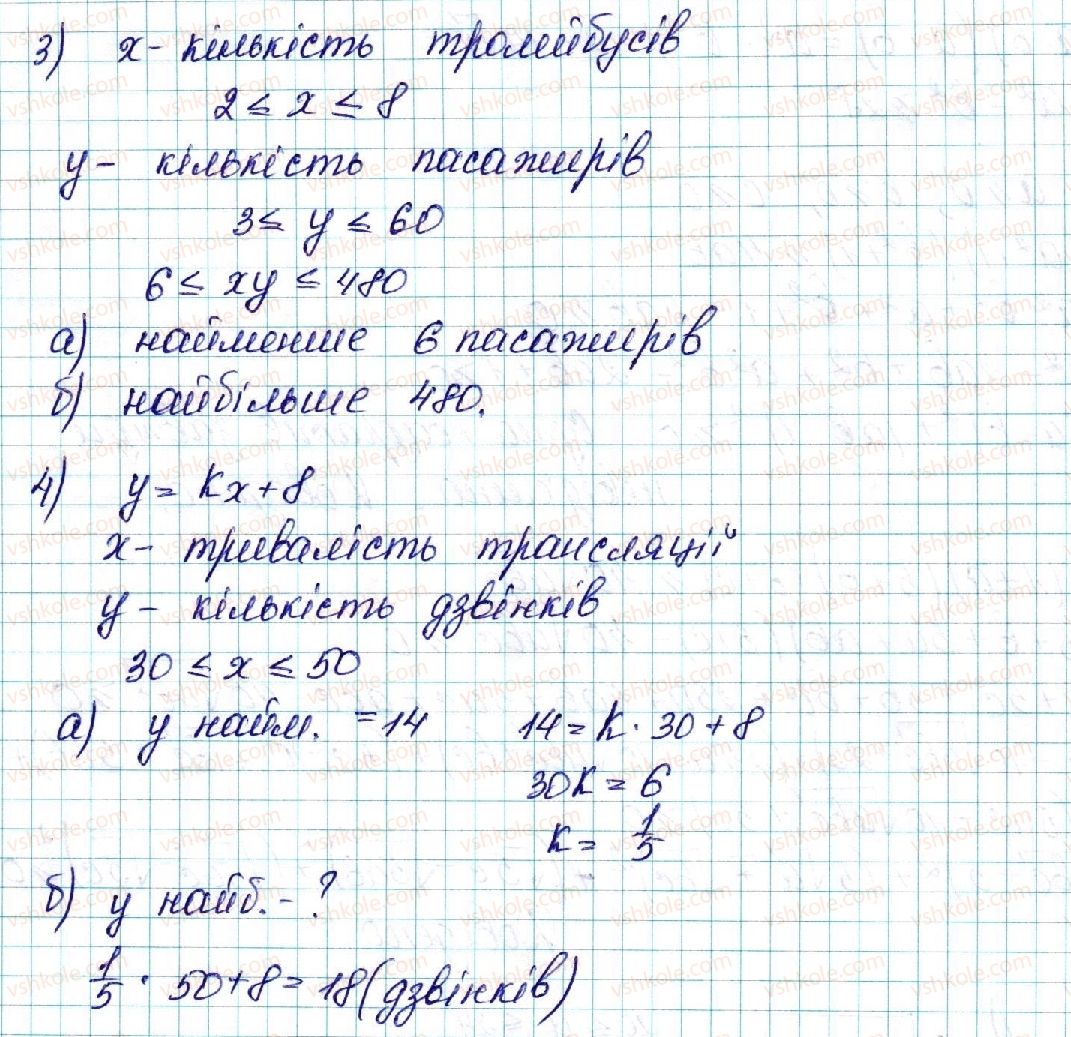 3) x - кількість тролейбусів
2 ≤ x ≤ 8
y - кількість пасажирів
3 ≤ y ≤ 60
6 ≤ xy ≤ 480
а) найменше 6 пасажирів
б) найбільше 480.
4) y = kx + 8
x - тривалість трансляції
y - кількість дзвінків
30 ≤ x ≤ 50
а) y найм. = 14 14 = k · 30 + 8
30k = 6
k = 1/5
б) y найб. - ?
1/5 · 50 + 8 = 18 (дзвінків)